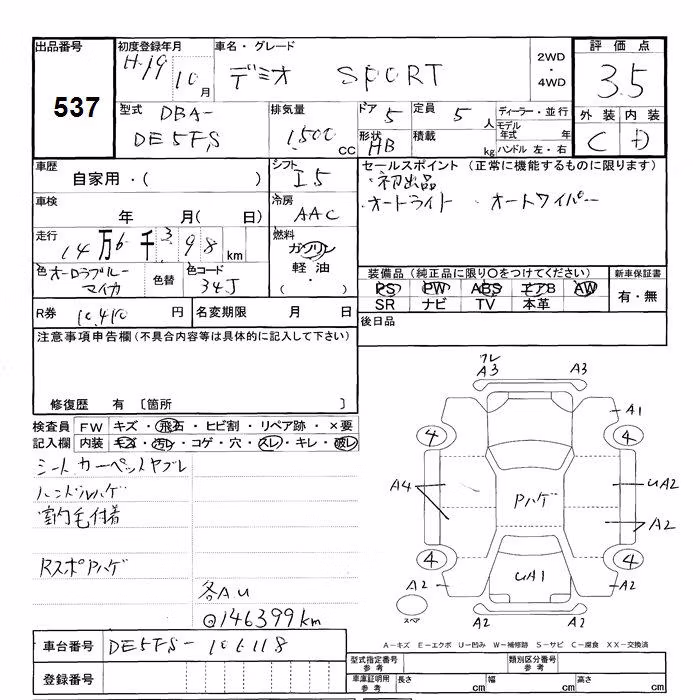 出品番号 初度登録年月 車名・グレード 評価点
537 H-19 10月 デミオ SPORT 2WD・4WD 3.5
型式 DBA- DE5FS 排気量 1,500 cc ドア 5 定員 5人 ディーラー・並行 外装 内装
形状 HB 積載 kg モデル年式 年 ハンドル 左・右 C D
車歴 自家用・( ) シフト I5 セールスポイント (正常に機能するものに限ります)
車検 年 月( 日) 冷房 AAC ・初出品
・オートライト ・オートワイパー
走行 14万6千398km 燃料 ガソリン 軽油 ・( )
色 オーロラブルーマイカ 色替 色コード 34J 装備品 (純正品に限り○をつけてください) 新車保証書
PS PW ABS エアB AW 有・無
SR ナビ TV 本革
R券 10,410円 名変期限 月 日 後日品
注意事項申告欄(不具合内容等は具体的に記入して下さい)
修復歴 有 〔箇所 〕
検査員記入欄 FW キズ・飛石・ヒビ割・リペア跡・×要
内装 キズ・汚レ・コゲ・穴・スレ・キレ・破レ
シート カーペットヤブレ
ハンドルハゲ
室内毛付着
Rスポハゲ
各A.U
@146399km
ワレ
A3 A3
A1
4 4
A4 Pハゲ UA2
A2
4 4
A2 UA1 A2
A2 A2
スペア
A-キズ E-エクボ U-凹み W-補修跡 S-サビ C-腐食 XX-交換済
車台番号 DE5FS-106118
型式指定番号 参考 類別区分番号 参考
登録番号 車庫証明用 参考 長さ cm 幅 cm 高さ cm